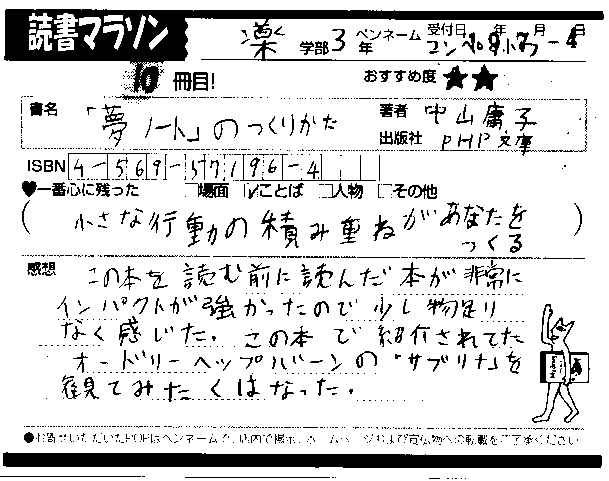 読書マラソン
学部 3年 ペンネーム 受付日 年 月 日
10 冊目! おすすめ度 ★★
書名 「夢ノート」のつくりかた 著者 中山庸子
出版社 PHP文庫
ISBN 4-569-57196-4
♥一番心に残った □場面 ☑ことば □人物 □その他
(小さな行動の積み重ねがあなたを
つくる)
感想 この本を読む前に読んだ本が非常に
インパクトが強かったので少し物足り
なく感じた。この本で紹介されてた
オードリーヘップバーンの「サブリナ」を
観てみたくはなった。
●お寄せいただいたPOPはペンネームで、店内で掲示、ホームページおよび宣伝物への転載をご了承ください